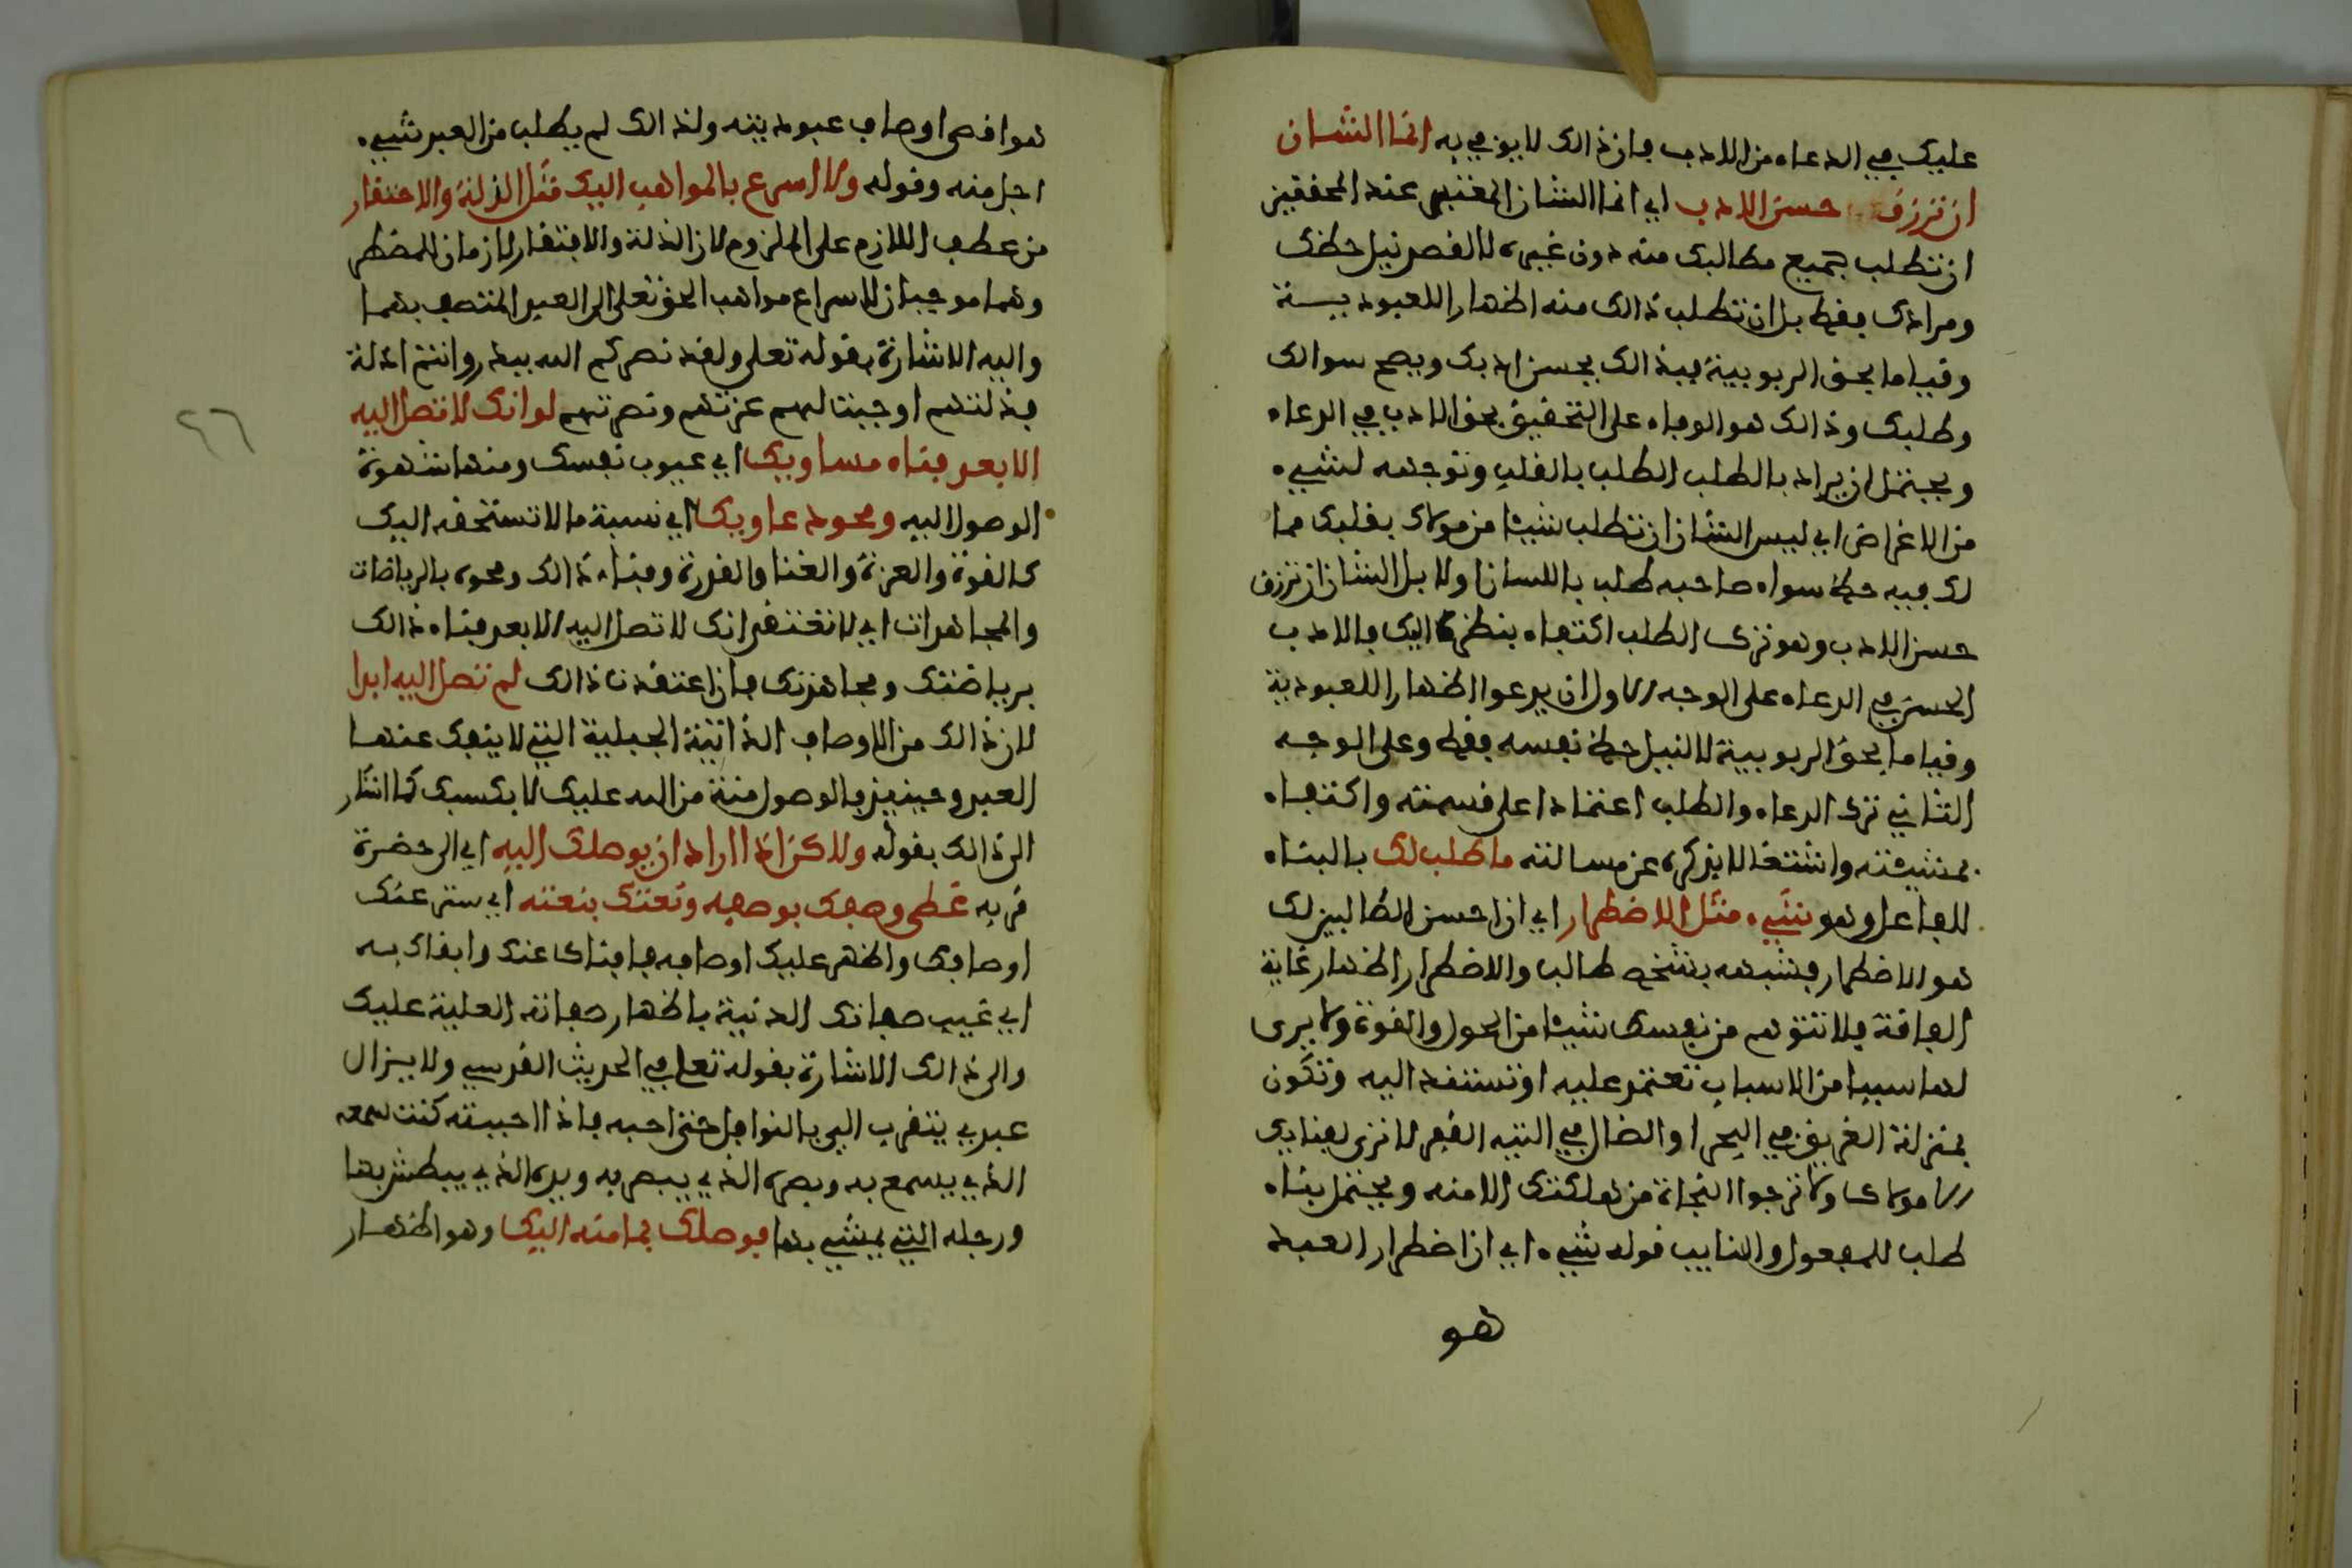 عليك في الدعاء من الادب فان ذالك لا يوفي به انما الشان
ان ترزق حسن الادب اي انما الشان المعتبر عند المحققين
ان تطلب جميع مطالبك منه دون غيره لا لقصر نيل حظك
ومرادك فقط بل ان تطلب ذالك منه اظهارا للعبودية
وقياما بحق الربوبية فبذالك يحسن ادبك ويصح سوالك
وطلبك وذالك هو الوفاء على التحقيق بحق الادب في الدعاء
ويحتمل ان يراد بالطلب الطلب بالقلب وتوجهه لشيء
من الاغراض اي ليس الشان ان تطلب شيئا من مولاك بقلبك مما
لك فيه حظ سواء صاحبه طلب باللسان اولا بل الشان ان ترزق
حسن الادب وهو ترك الطلب اكتفاء بنظره اليك فالادب
الحسن في الدعاء على الوجه الاول ان يدعوا اظهارا للعبودية
وقياما بحق الربوبية لا لنيل حظ نفسه فقط وعلى الوجه
الثاني ترك الدعاء والطلب اعتمادا على قسمته واكتفاء
بمشيئته واشتغالا بذكره عن مسالته ما طلب لك بالبناء
للفاعل وهو شيء مثل الاضطرار اي ان احسن الطالبين لك
هو الاضطرار فشبهه بشخص طالب والاضطرار اظهار غاية
الفاقة فلا تتوهم من نفسك شيئا من الحول والقوة ولا يرى
لها سببا من الاسباب تعتمد عليه او تستند اليه وتكون
بمنزلة الغريق في البحر او الضال في التيه القفر لا ترى لغناءك
الا مولاك ولا ترجوا النجاة من هلكتك الا منه ويحتمل بناء
طلب للمفعول والنايب قوله شيء اي ان اضطرار العبد
هو
هو اقصى اوصاف عبوديته ولذالك لم يطلب من العبد شيء
اجل منه وقوله ولا اسرع بالمواهب اليك مثل الذلة والافتقار
من عطف اللازم على الملزوم لان الذلة والافتقار لازمان للمضطر
وهما موجبان لاسراع مواهب الحق تعلى الى العبد المتصف بهما
واليه الاشارة بقوله تعلى ولقد نصركم الله ببدر وانتم اذلة
فذلتهم اوجبت لهم عزتهم ونصرتهم لو انك لا تصل اليه
الا بعد فناء مساويك اي عيوب نفسك ومنها شهوة
الوصول اليه ومحو دعاويك اي نسبة ما لا تستحقه اليك
كالقوة والعزة والغنا والقدرة وفناء ذالك ومحوه بالرياضات
والمجاهدات اي لا تعتقد انك لا تصل اليه الا بعد فناء ذالك
برياضتك ومجاهدتك فان اعتقدت ذالك لم تصل اليه ابدا
لان ذالك من الاوصاف الذاتية الجبلية التي لا ينفك عنها
العبد وحينيذ فالوصول منة من الله عليك لا بكسبك كما اشار
الى ذالك بقوله ولاكن اذا اراد ان يوصلك اليه اي الى حضرة
قربه غطى وصفك بوصفه ونعتك بنعته اي ستر عنك
اوصافك واظهر عليك اوصافه فافناك عنك وابقاك به
اي غيب صفاتك الدنية باظهار صفاته العلية عليك
والى ذالك الاشارة بقوله تعلى في الحديث القدسي ولا يزال
عبدي يتقرب الي بالنوافل حتى احبه فاذا احببته كنت سمعه
الذي يسمع به وبصره الذي يبصر به ويده الذي يبطش بها
ورجله التي يمشي بها فوصلك بما منه اليك وهو اظهار
٢٦